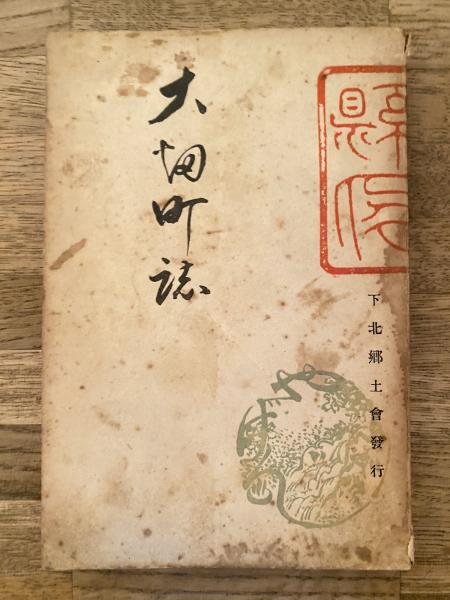 大畑町誌
下北郷土會發行